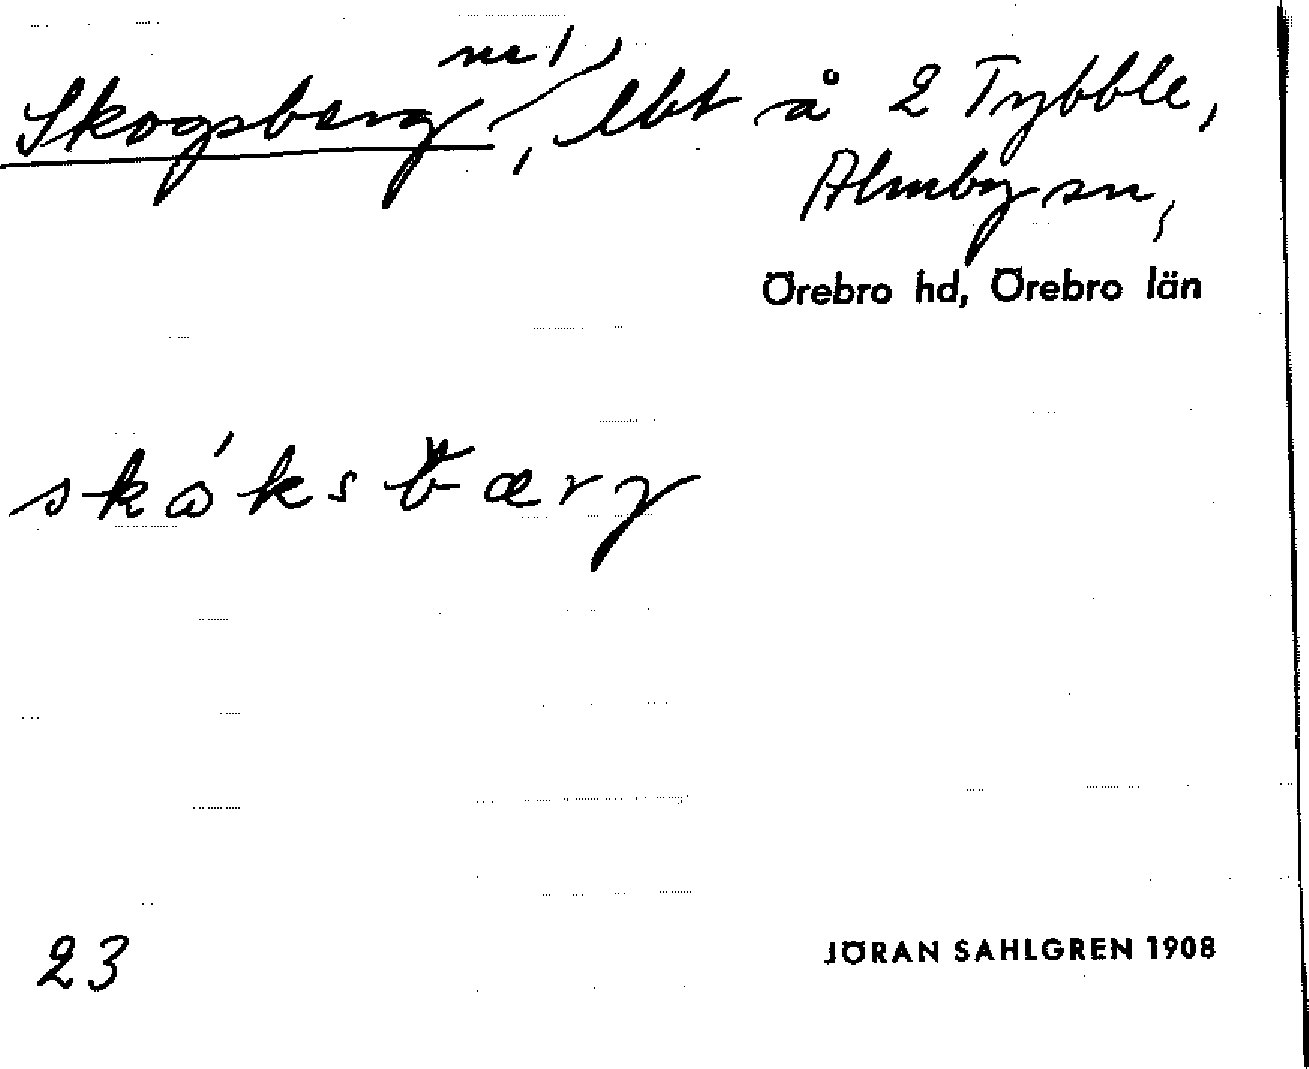 Skogsberg nr 1, lht å 2 Tybble,
Almby sn,
Örebro hd, Örebro län
23
JÖRAN SAHLGREN 1908